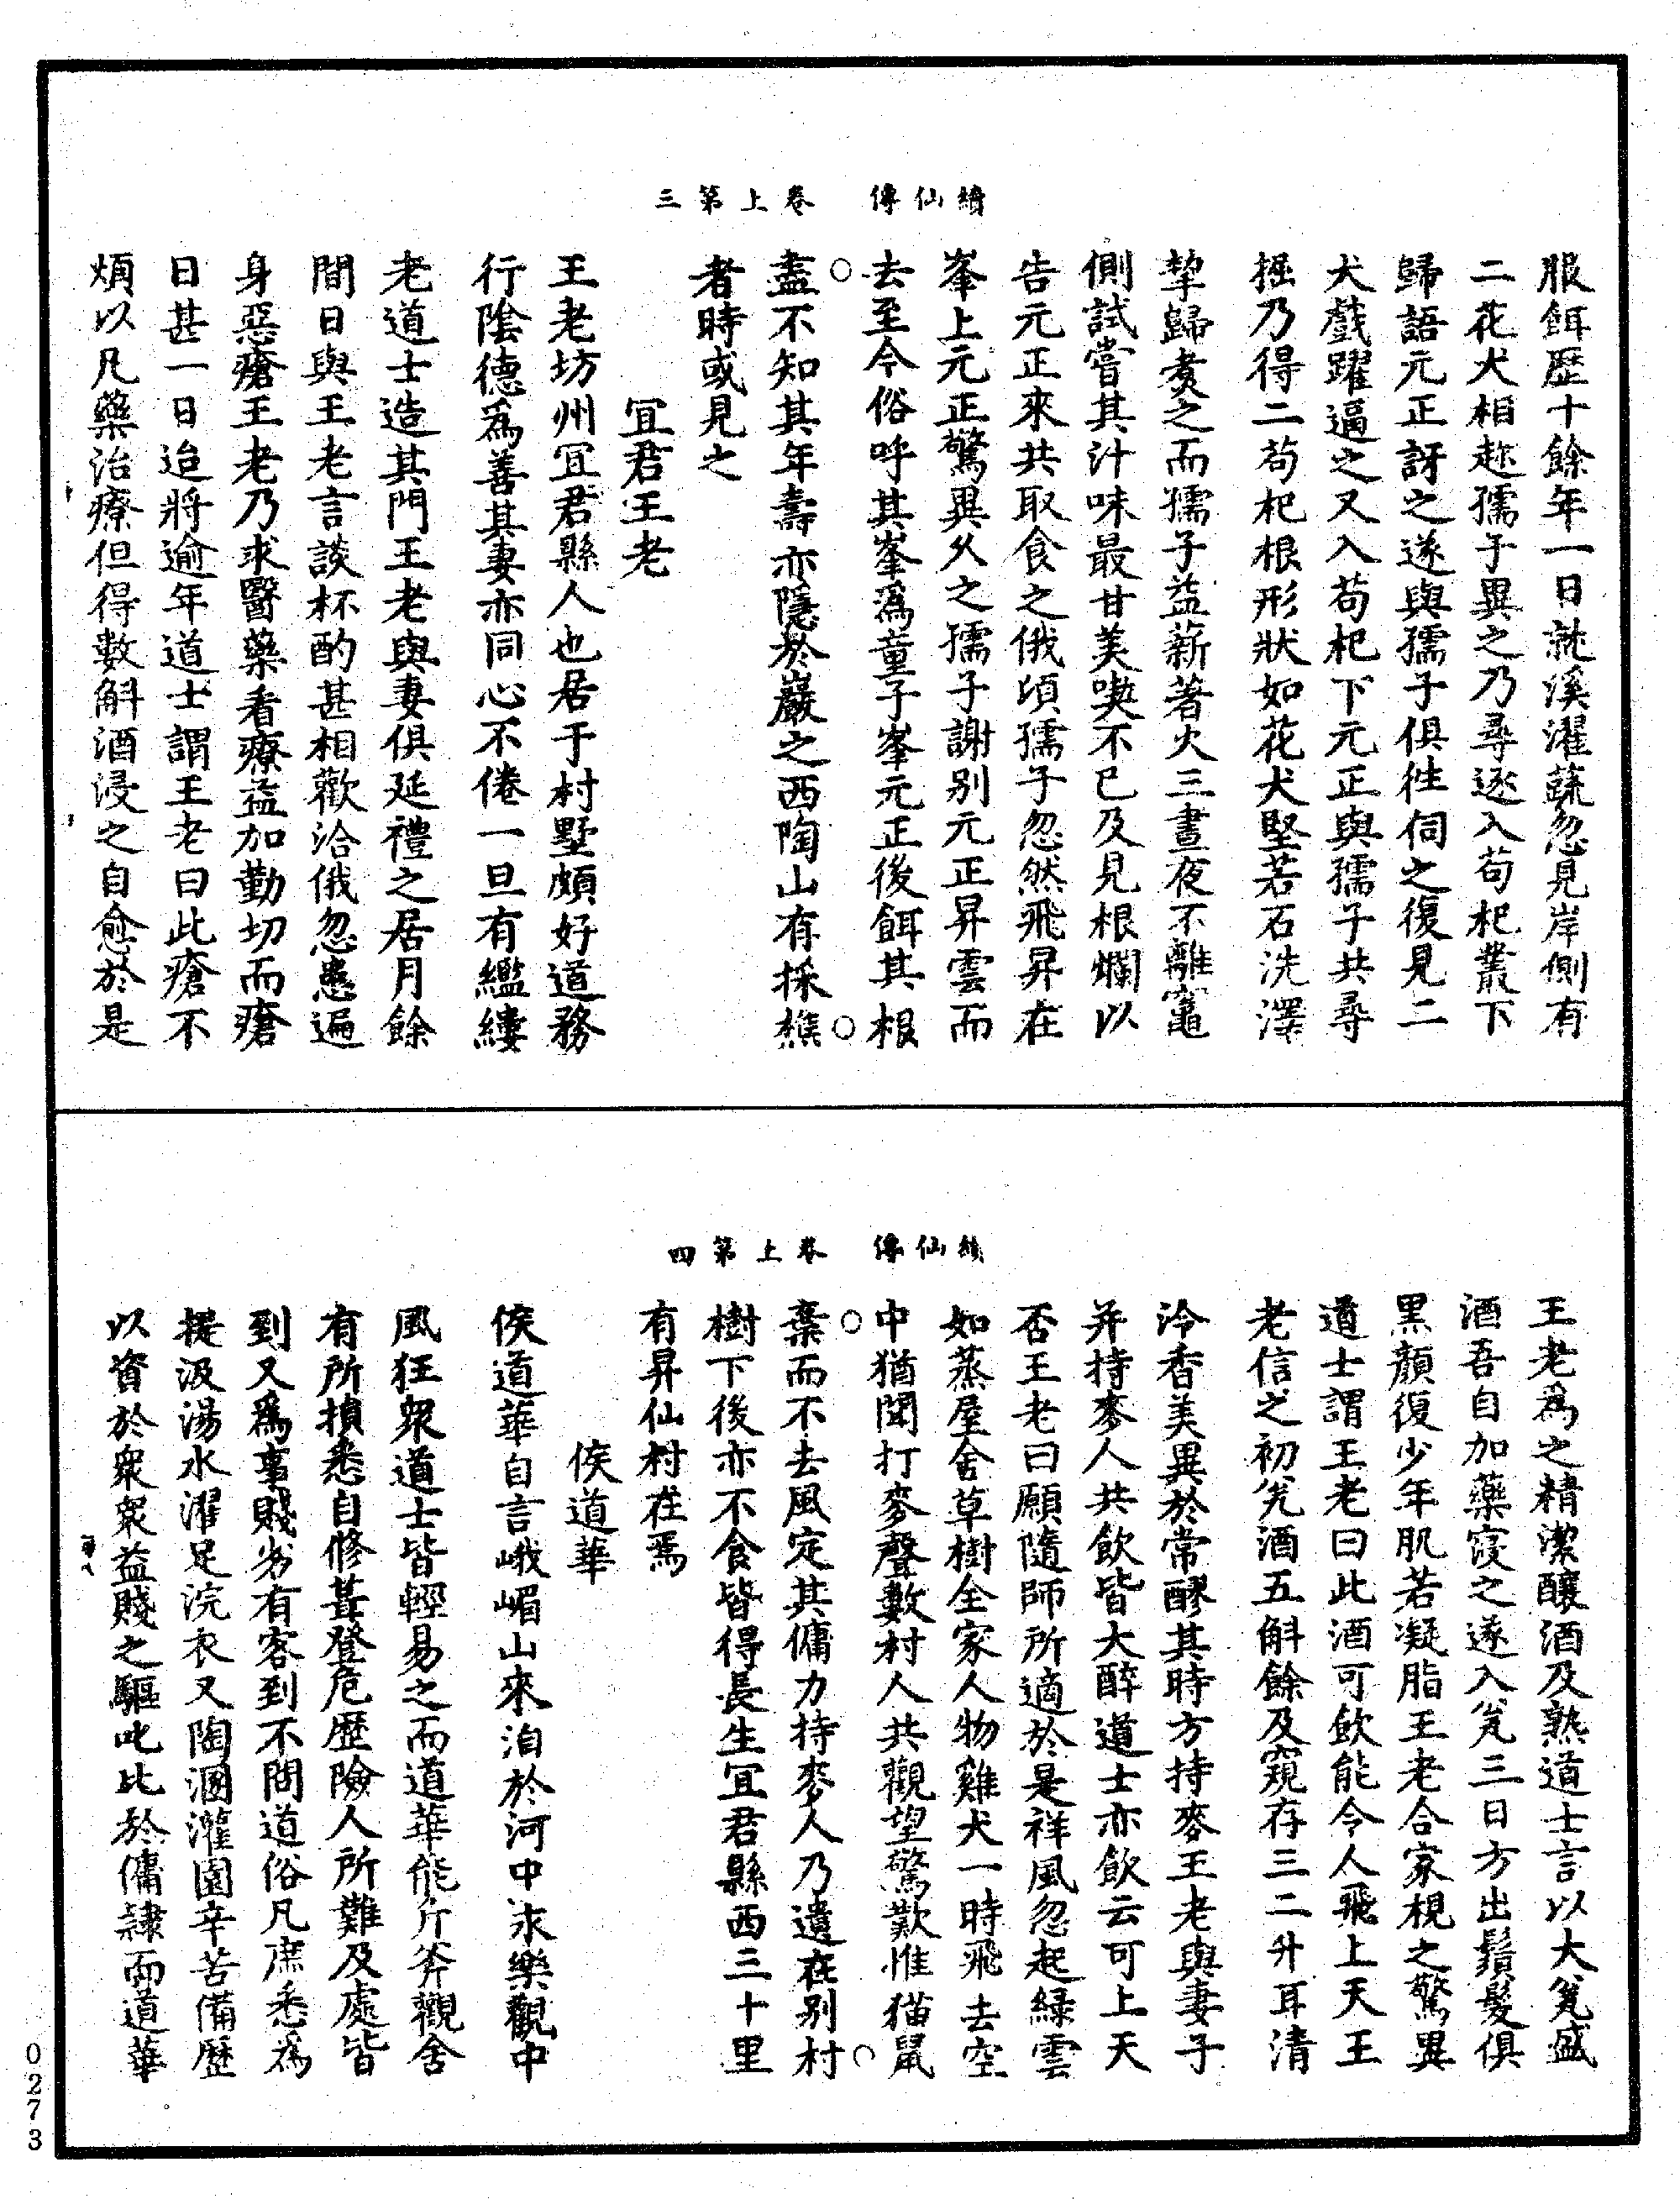 續仙傳　卷上第三
服餌歷十餘年一日就溪濯蔬忽見岸側有
二花犬相趂孺子異之乃尋逐入苟杞叢下
歸語元正訝之遂與孺子俱徃伺之復見二
犬戲躍逼之又入苟杞下元正與孺子共尋
掘乃得二苟杞根形狀如花犬堅若石洗澤
挈歸煑之而孺子益薪著火三晝夜不離竈
側試嘗其汁味最甘美喫不已及見根爛以
告元正來共取食之俄頃孺子忽然飛昇在
峯上元正驚異久之孺子謝别元正昇雲而
去至今俗呼其峯爲童子峯元正後餌其根
盡不知其年壽亦隱於巖之西陶山有採樵
者時或見之
宜君王老
王老坊州宜君縣人也居于村墅頗好道務
行陰德爲善其妻亦同心不倦一旦有繿縷
老道士造其門王老與妻俱延禮之居月餘
間日與王老言談杯酌甚相歡洽俄忽患遍
身惡瘡王老乃求醫藥看療益加勤切而瘡
日甚一日迨將逾年道士謂王老曰此瘡不
煩以凡藥治療但得數斛酒浸之自愈於是
續仙傳　卷上第四
王老爲之精潔釀酒及熟道士言以大瓮盛
酒吾自加藥寖之遂入瓮三日方出鬚髮俱
黑顔復少年肌若凝脂王老合家視之驚異
道士謂王老曰此酒可飲能令人飛上天王
老信之初瓮酒五斛餘及窺存三二升耳清
泠香美異於常醪其時方持麥王老與妻子
并持麥人共飲皆大醉道士亦飲云可上天
否王老曰願隨師所適於是祥風忽起綠雲
如蒸屋舍草樹全家人物雞犬一時飛去空
中猶聞打麥聲數村人共觀望驚歎惟猫鼠
棄而不去風定其傭力持麥人乃遺在别村
樹下後亦不食皆得長生宜君縣西三十里
有昇仙村在焉
侯道華
侯道華自言峨嵋山來泊於河中永樂觀中
風狂衆道士皆輕易之而道華能斤斧觀舍
有所損悉自修葺登危歷險人所難及處皆
到又爲事賤劣有客到不問道俗凡庶悉爲
提汲湯水濯足浣衣又陶溷灌園辛苦備歷
以資於衆衆益賤之驅叱比於傭隸而道華
0273